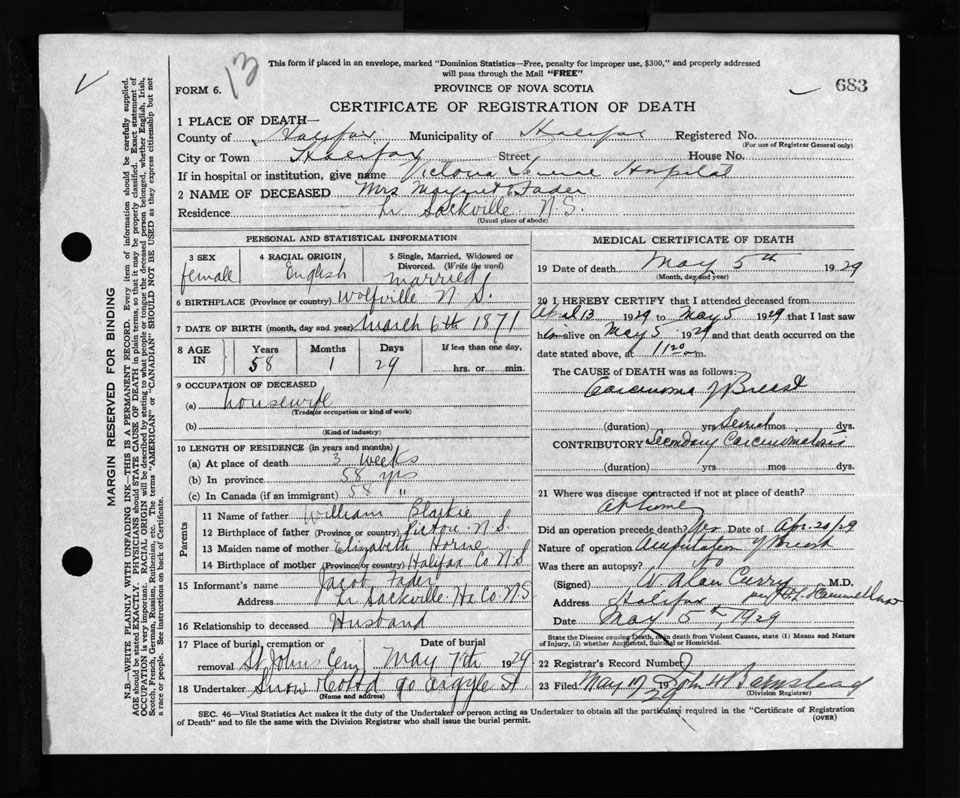 13
This form if placed in an envelope, marked "Dominion Statistics—Free, penalty for improper use, $300," and properly addressed
will pass through the Mail "FREE"
683
FORM 6.
PROVINCE OF NOVA SCOTIA
CERTIFICATE OF REGISTRATION OF DEATH
1 PLACE OF DEATH—
County of Halifax Municipality of Halifax Registered No.
(For use of Registrar General only)
City or Town Halifax Street House No.
If in hospital or institution, give name Victoria General Hospital
2 NAME OF DECEASED Mrs Margaret E Fader
Residence Lr Sackville N.S.
(Usual place of abode)
PERSONAL AND STATISTICAL INFORMATION
3 SEX 4 RACIAL ORIGIN 5 Single, Married, Widowed or
Divorced. (Write the word)
female English married
6 BIRTHPLACE (Province or country) Wolfville N S.
7 DATE OF BIRTH (month, day and year) March 6th 1871
8 AGE IN Years Months Days If less than one day,
58 1 29 hrs. or min.
9 OCCUPATION OF DECEASED
(a) housewife
(Trade or occupation or kind of work)
(b)
(Kind of industry)
10 LENGTH OF RESIDENCE (in years and months)
(a) At place of death 3 weeks
(b) In province 58 yrs
(c) In Canada (if an immigrant) 58 "
Parents
11 Name of father William Blaikie
12 Birthplace of father (Province or country) Pictou N.S.
13 Maiden name of mother Elizabeth Horne
14 Birthplace of mother (Province or country) Halifax Co N S
15 Informant's name Jacob Fader
Address Lr Sackville Hx Co N S
16 Relationship to deceased Husband
17 Place of burial, cremation or Date of burial
removal St Johns Cem May 7th 1929
18 Undertaker Snow & Co Ltd 90 Argyle St.
(Name and address)
MEDICAL CERTIFICATE OF DEATH
19 Date of death May 5th 1929
(Month, day and year)
20 I HEREBY CERTIFY that I attended deceased from
April 13 1929 to May 5 1929 that I last saw
alive on May 5 1929 and that death occurred on
date stated above, at 11 20 m.
The CAUSE OF DEATH was as follows:
Carcinoma of Breast
(duration) yrs Several mos dys.
CONTRIBUTORY Secondary Carcinomatosis
(duration) yrs mos. dys.
21 Where was disease contracted if not at place of death?
At home
Did an operation precede death? Yes Date of Apr. 20/29
Nature of operation Amputation of Breast
Was there an autopsy? No
(Signed) W. Alan Curry M.D.
Address Halifax per
Date May 5th, 1929
State the Disease causing Death, or, in death from Violent Causes, state (1) Means and
Nature of Injury, (2) whether Accidental, Suicidal, or Homicidal.
22 Registrar's Record Number
23 Filed May 17 1929 John H
(Division Registrar)
SEC. 46—Vital Statistics Act makes it the duty of the Undertaker or person acting as Undertaker to obtain all the particulars required in the "Certificate of Registration
of Death" and to file the same with the Division Registrar who shall issue the burial permit.
(OVER)
MARGIN RESERVED FOR BINDING
N.B.—WRITE PLAINLY WITH UNFADING INK—THIS IS A PERMANENT RECORD. Every item of information should be carefully supplied.
AGE should be stated EXACTLY. PHYSICIANS should STATE CAUSE OF DEATH in plain terms, so that it may be properly classified. Exact statement of
OCCUPATION is very important. RACIAL ORIGIN will be described by stating to what people or tongue the deceased person belonged, whether English, Irish,
Scotch, French, German, Russian, Ruthenian, etc. The terms "AMERICAN" or "CANADIAN" SHOULD NOT BE USED as they express citizenship but not
a race or people. See instructions on back of Certificate.